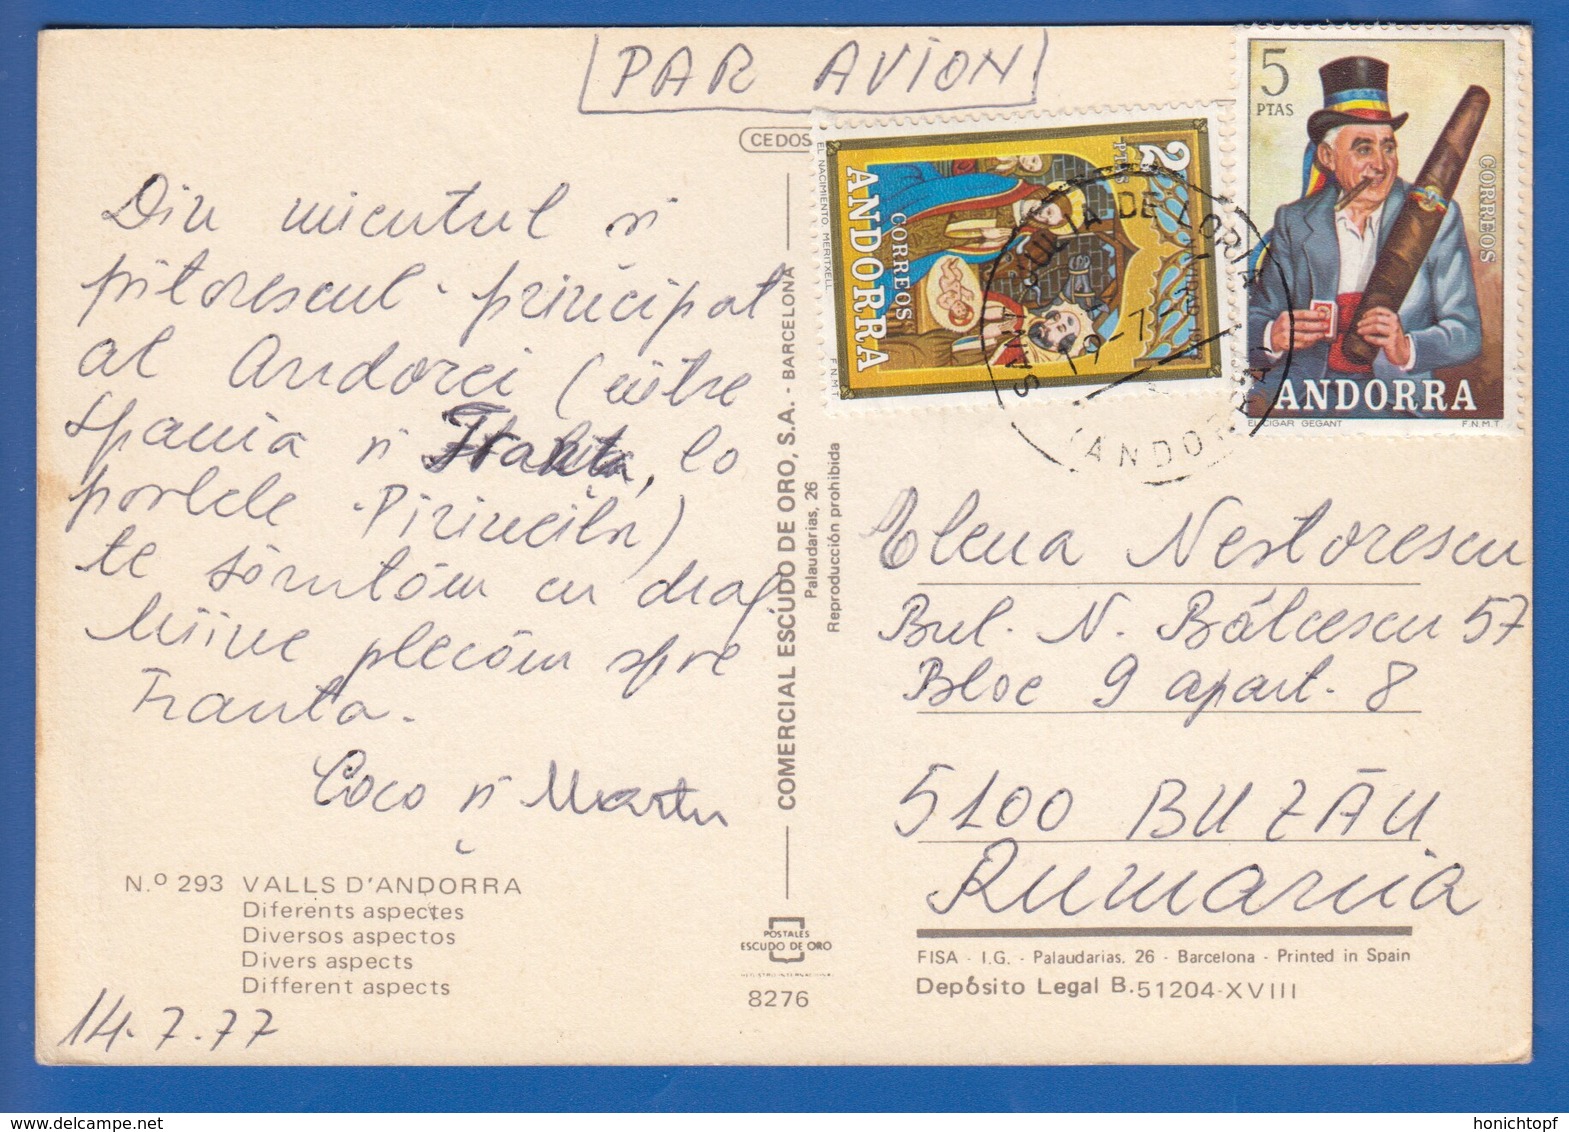 PAR AVION
CEDOS
Din micutul si
pitorescul principat
al Andorei (între
Spania si Franta, la
poalele Pirineilor)
te sărutăm cu drag.
Mîine plecăm spre
Franta.
Coco si
N.º 293 VALLS D'ANDORRA
Diferents aspectes
Diversos aspectos
Divers aspects
Different aspects
14.7.77
COMERCIAL ESCUDO DE ORO, S.A. - BARCELONA
Palaudarias, 26
Reproducción prohibida
POSTALES
ESCUDO DE ORO
8276
2
PTAS
CORREOS
ANDORRA
EL NACIMIENTO. MERITXELL
F.N.M.T
SANT JULIA DE LORIA
(ANDORRA)
5
PTAS
CORREOS
ANDORRA
EL CIGAR GEGANT
F.N.M.T
Elena Nestorescu
Bul. N. Bălcescu 57
Bloc 9 apart. 8
5100 BUZĂU
Rumania
FISA - I.G. - Palaudarias, 26 - Barcelona - Printed in Spain
Depósito Legal B. 51204-XVIII
honichtopf